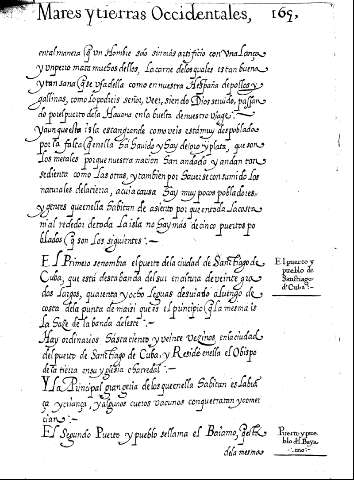 Mares y tierras Occidentales, 169,
ental manera q̃ un Hombre solo sin mas artificio con Una Lança
y un perro mata muchos dellos, La carne de los quales es tan buena
y tan sana q̃ se Usa della como en nuestra España de pollos y
gallinas, como lo podeis señor, Veer, siendo Dios seuido, passan
do por el puerto de la Havana en la buelta de nuestro viage.
y aun que esta isla es tan grande como veis esta muy despoblada
por la falta q̃ en ella Ha Havido y Hay de oro y plata, que son
los metales porque nuestra nacion Han andado y andan tan
sedientos como Las otras, y tambien por Haverse consumido Los
naturales de la tierra, a cuia causa Hay muy pocos pobladores
y gentes que en ella Habitan de asiento por que en toda La costa
ni al rededor de toda La isla no Hay mas de cinco puertos po
blados q̃ son Los siguientes.
El Primero se nombra el puerto de la ciudad de Santiago de
Cuba, que está desta banda del sur en altura de veinte gra
dos Largos, quarenta y ocho Leguas desviado a luengo de
costa de la punta de maisi que es el principio q̃ la mesma is
la Haze de la banda del este.
Hay ordinarios Hasta ciento y veinte vezinos en la ciudad
del puerto de Santiago de Cuba, y Reside en ella el Obispo
de la tierra en su yglesia chatedral.
Y La Principal grangeria de los que en ella Habitan es La bia
ta y criança, y algunos cueros vacunos con que tratan y comer
cian.
El Segundo Puerto y pueblo se llama el Baiamo,
de la mesma
El puerto y
pueblo de
Santiago
d'Cuba.
Puerto y pue
blo del Baya
mo.